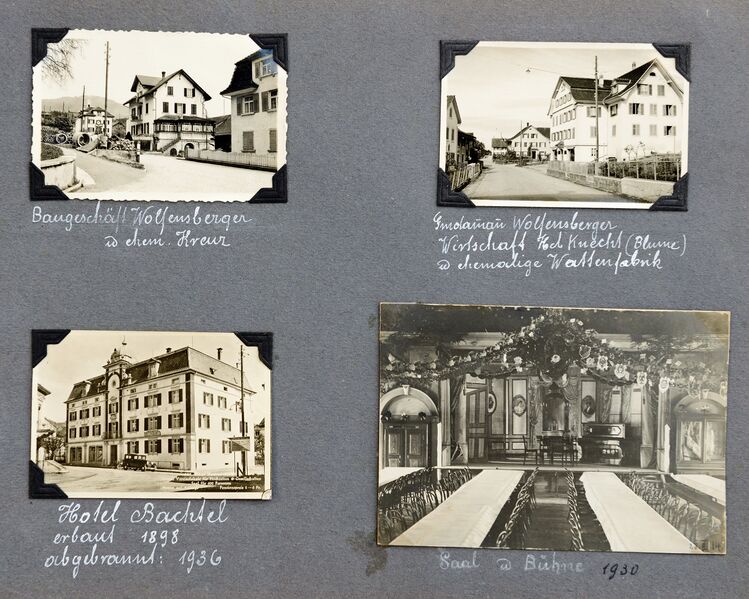 Baugeschäft Wolfensberger
u ehem. Kreuz
Wolfensberger
Wirtschaft Hch Knecht (Blume)
u ehemalige Wattenfabrik
Hotel Bachtel
erbaut 1898
abgebrannt: 1936
Saal u Bühne 1930